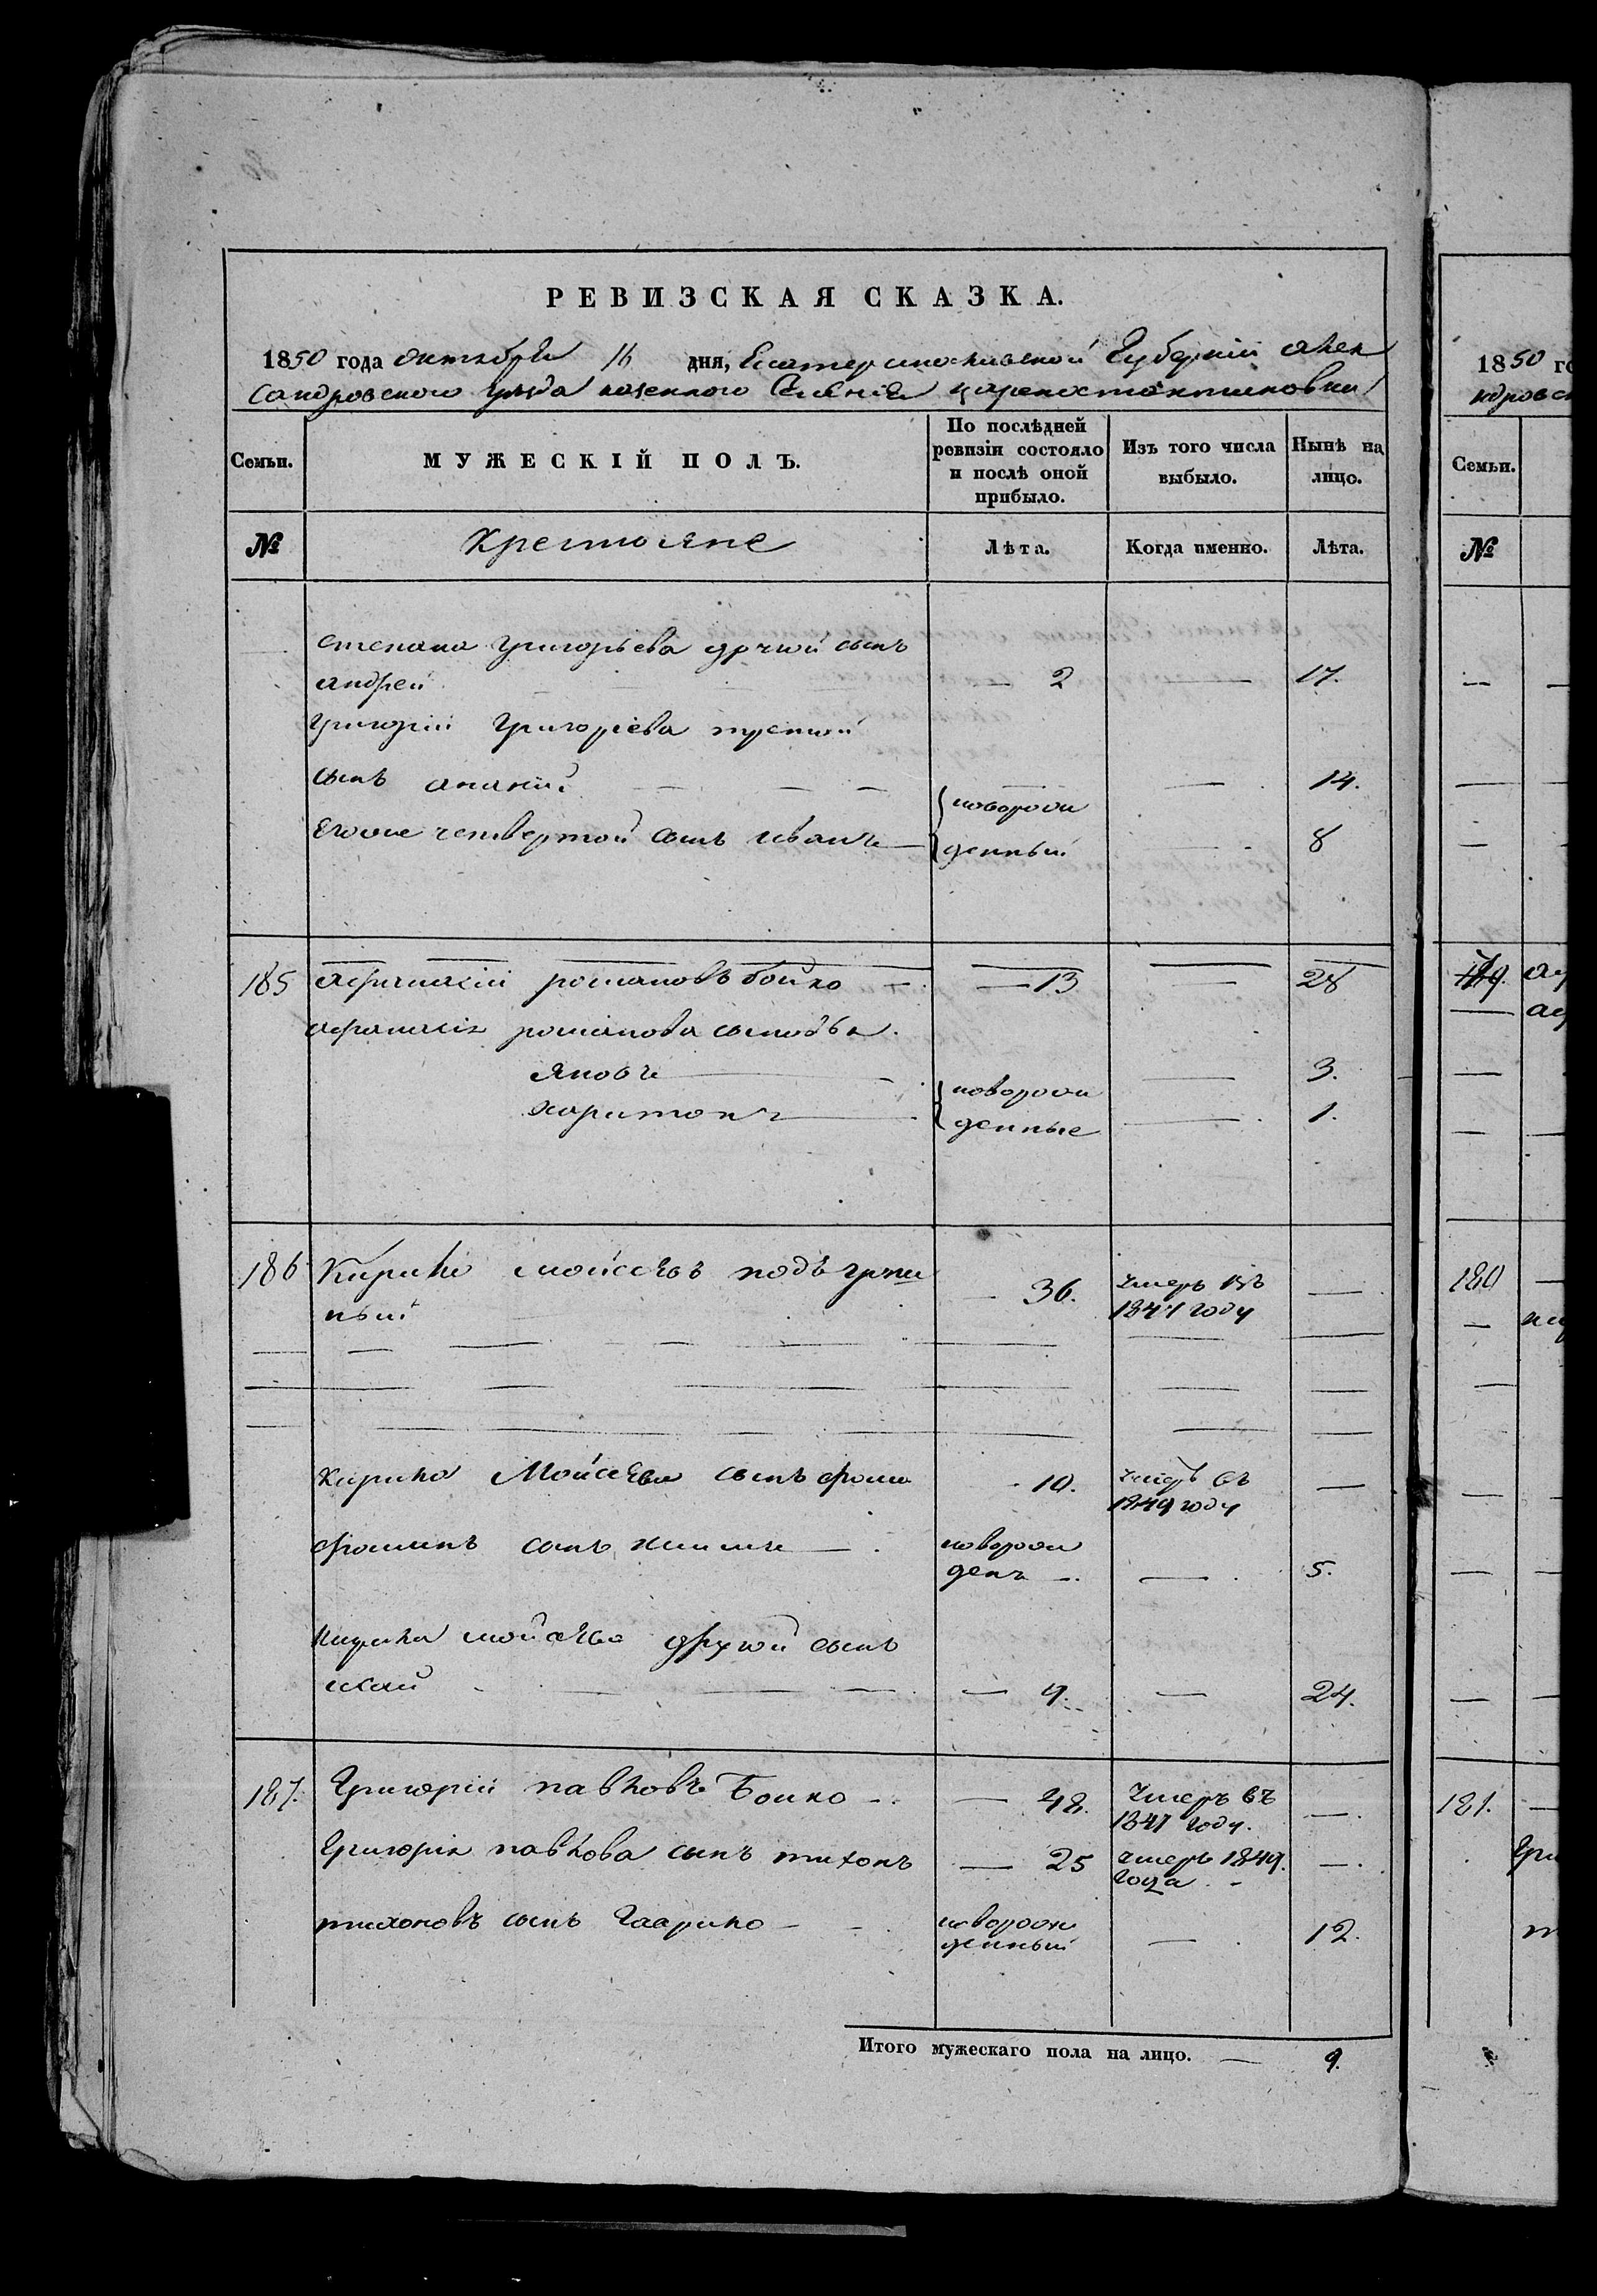 РЕВИЗСКАЯ СКАЗКА.
1850 года октября 16 дня, Екатеринославской Губерніи Алек
сандровского уезда казенного Селенія Цареконстантиновки
Семьи. МУЖЕСКІЙ ПОЛЪ. По послѣдней ревизіи состояло и послѣ оной прибыло. Изъ того числа выбыло. Ныиѣ на лицо.
№ Крестьяне Лѣта. Когда именно. Лѣта.
Степана Григорьева другий сынъ
андрей — 2 — 17.
Григорій Григоріева третий
сынъ ананій — 14.
Егоже четвертой сынъ иванъ — { новорож денный — 8
185 афанасій романовъ бойко — 13 — 28
афанасія романова сыновья
яковъ — 3.
харитонъ — { новорож денные — 1.
186 Кирило мойсеевъ подъ
ный — 36. умеръ въ 1847 году —
Кирила Мойсеева сынъ фома 10. умеръ въ 1849 году —
фоминъ сынъ — новорож денъ — 5.
Кирила мойсеева другой сынъ
исай — 9. — 24.
187. Григорій павловъ Бойко — 48. Умеръ въ 1847 году. —
Григорія павлова сынъ тихонъ — 25 умеръ 1849. года —
тихоновъ сынъ Гаврило — новорож денный — 12.
Итого мужескаго пола на лицо. — 9.
1850 го
ндровск
Семьи.
№
179.
180
181.